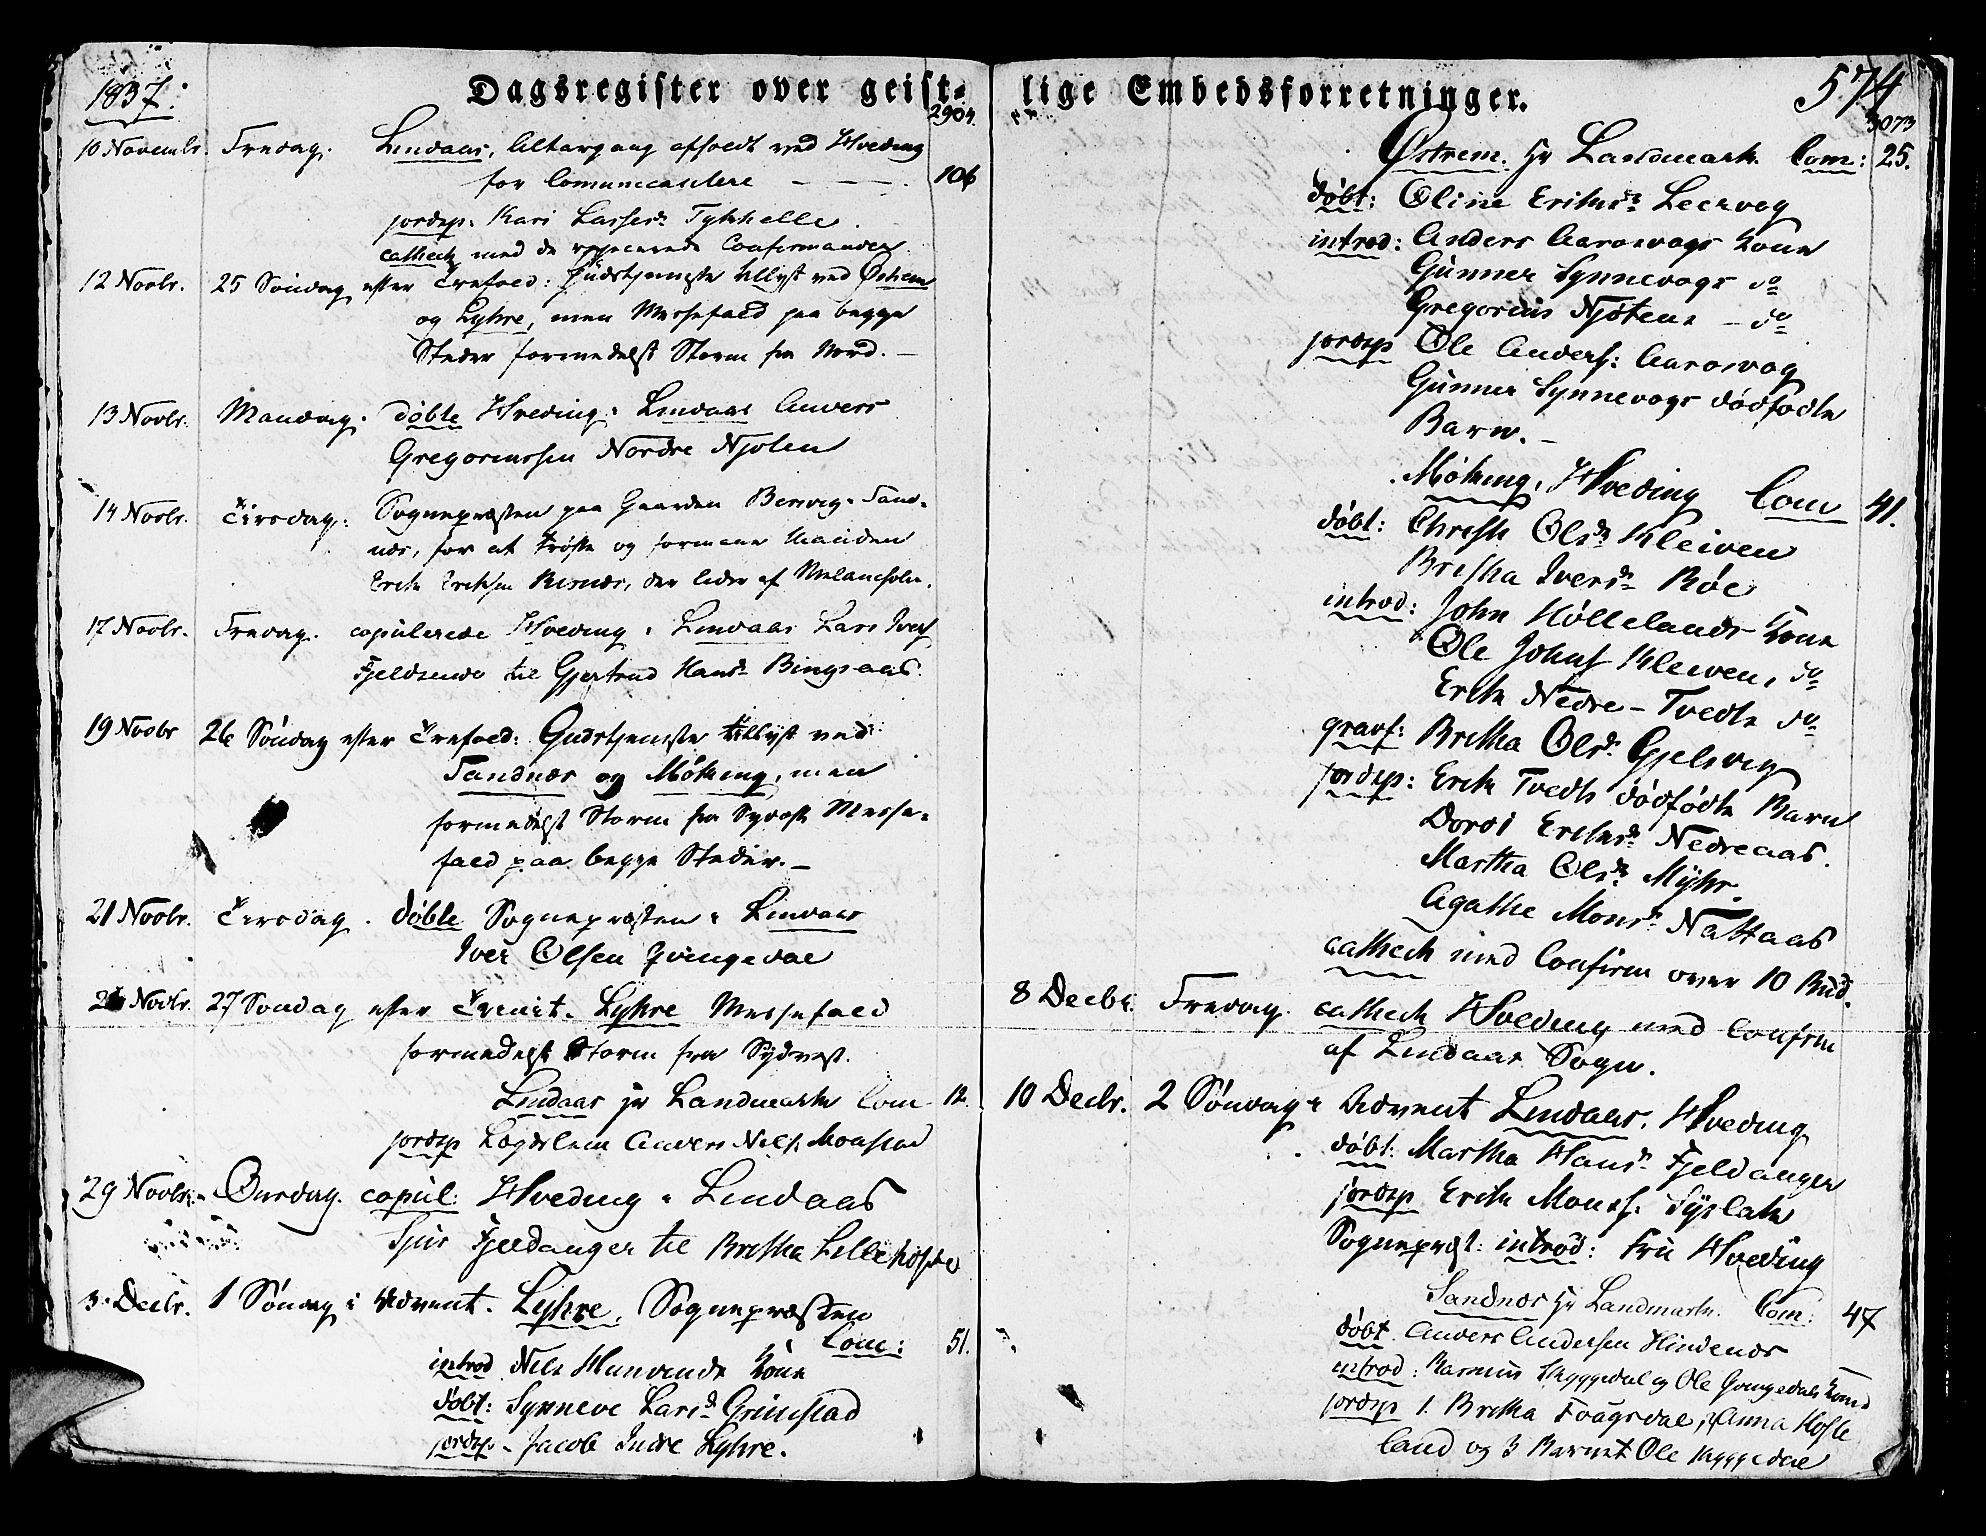 1837.
Dagsregister over geist-
2904.
10 Novembr. Fredag. Lindaas, Altergang afholdt ved Hveding
for Communicantere — — . 106
jordsp. Kari Lassesd. Tykhelle
cathech. med de Confirmander
12 Novbr. 25 Søndag efter Trefold: Gudstjeneste tillyst ved Østrem
og Lyhre, men Messefald paa begge
Steder formedelst Storm fra Nord. —
13 Novbr. Mandag. døbte Hveding i Lindaas Anders
Gregoriussen Nordre Njøten
14 Novbr. Tirsdag. Sognepræsten paa Gaarden i Sand-
næs, for at trøste og formane Manden
Erik Eriksen Risnæs, der lider af Melancholie.
17 Novbr. Fredag. copulerede Hveding i Lindaas Lars Ivers.
Fjeldsende til Gjertrud Hansd. Bingsaas.
19 Novbr 26 Søndag efter Trefold: Gudstjeneste tillyst ved
Sandnæs og Møking, men
formedelst Storm fra Sydvest Messe-
fald paa begge Steder. —
21 Novbr. Tirsdag. døbte Sognepræsten i Lindaas
Iver Olsen Qvingedal
26 Novbr. 27 Søndag efter Trenit. Lyhre Messefald
formedelst Storm fra Sydvest.
Lindaas hr Landmark Com 12.
jordsp Lægdslem Anders Nels. Monstad
29 Novbr. Onsdag. copul: Hveding i Lindaas
Sjur Fjeldanger til Britha Lille
3. Decbr. 1 Søndag i Advent. Lyhre, Sognepræsten
Com: 51.
introd Nels Hunvends kone
døbt: Synneve Larsd. Grimstad
jordsp. Jacob Indre Lyhre.
lige Embedsforretninger.
574
3073
Østrem. hr Landmark. Com: 25.
døbt: Oline Eriksd. Leervog
introd: Anders Aarasvogs kone
Gunner Synnevogs do
Gregorius Njøtens — do
jordsp Ole Anders: Aarasvog
Gunner Synnevogs dødfødte
Barn. —
Møking, Hveding Com 41.
døbt: Christi Olsd. Kleiven
Britha Iversd. Røe
introd: John Høllelands kone
Ole Johns. Kleiven, do
Erik Nedre-Tvedte do
gravf: Britha Olsd. Gjelsvig
jordsp: Erik Tvedte dødfødte Barn
Dordi Eriksd. Nedreaas.
Martha Olsd. Myhr.
Agathe Monsd. Nattaas
cathech med Confirm over 10 Bud.
8 Decbr. Fredag. cathech Hveding med Confirm
af Lindaas Sogn.
10 Decbr. 2 Søndag i Advent Lindaas. Hveding
døbt: Martha Hansd. Fjeldanger
jordsp Erik Mons. Syslak
Sogneprest: introd: Fru Hveding
Sandnæs hr Landmark. Com: 47
døbt. Anders Andersen Hindenæs
introd: Rasmus Skyggedal og Ole Qvingedals kone
jordsp 1. Britha Fraagsdal, 2 Anna Hofle
land og 3 Barnet Ole Skyggedal